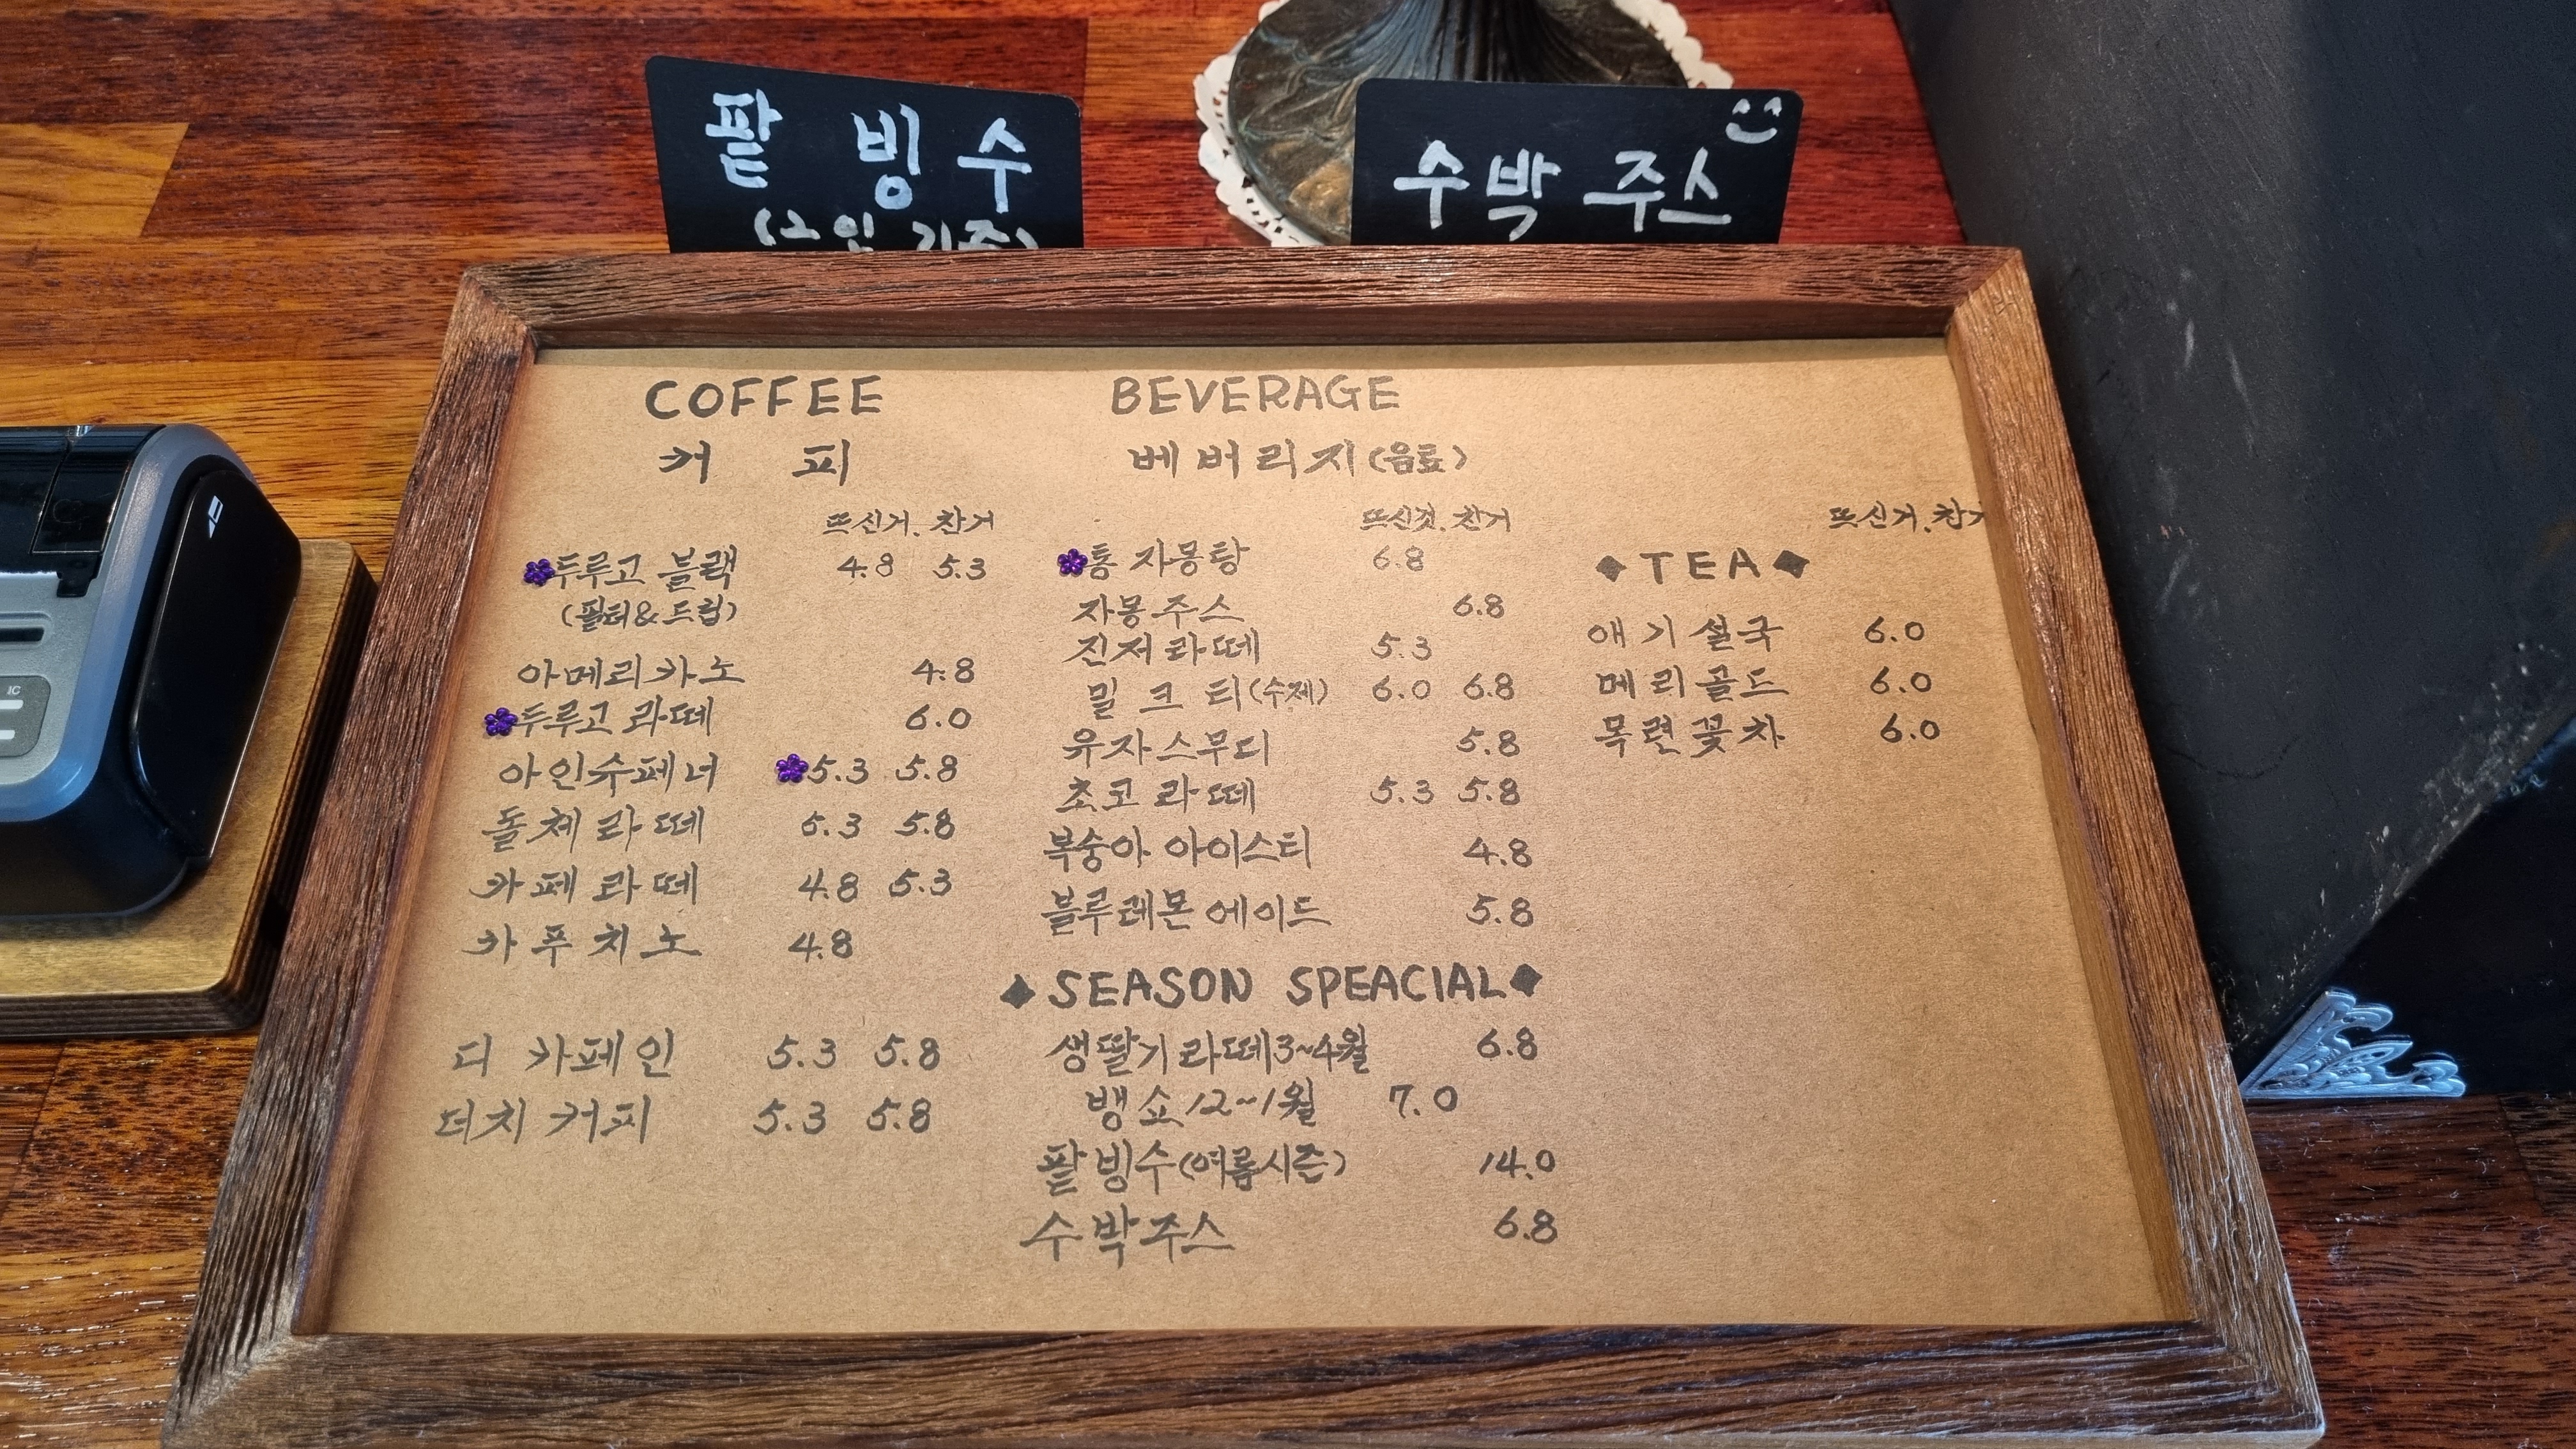 팥 빙수
(2인 기준)
수박주스
COFFEE
커 피
뜨신거. 찬거
두루고 블랙 4.8 5.3
(필터&드립)
아메리카노 4.8
두루고 라떼 6.0
아인슈페너 5.3 5.8
돌체라떼 5.3 5.8
카페라떼 4.8 5.3
카푸치노 4.8
디 카페인 5.3 5.8
더치 커피 5.3 5.8
BEVERAGE
베버리지(음료)
뜨신것. 찬거
통 자몽탕 6.8
자몽주스 6.8
진저라떼 5.3
밀크티(수제) 6.0 6.8
유자스무디 5.8
초코라떼 5.3 5.8
복숭아 아이스티 4.8
블루레몬에이드 5.8
SEASON SPEACIAL
생딸기라떼3~4월 6.8
뱅쇼12~1월 7.0
팥빙수(여름시즌) 14.0
수박주스 6.8
뜨신거. 찬거
TEA
애기설국 6.0
메리골드 6.0
목련꽃차 6.0
IC